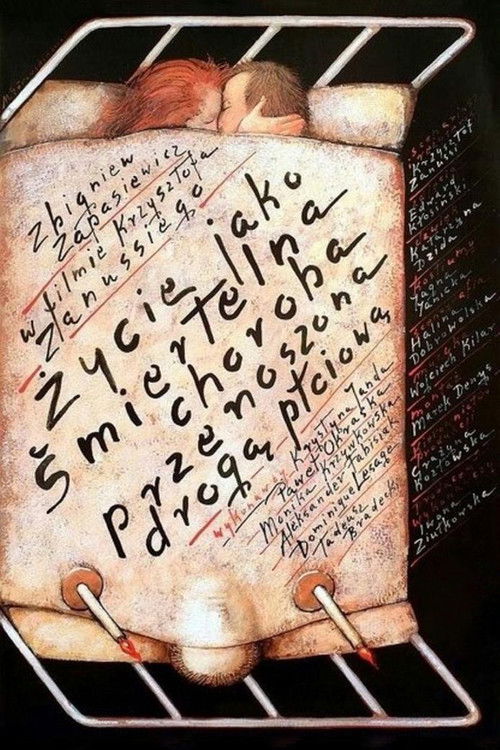 Zbigniew
Zapasiewicz
w filmie Krzysztofa
Zanussiego
Życie jako
Śmiertelna
choroba
przenoszona
drogą płciową
wykonawcy Krystyna Janda
Paweł Okraska
Monika Krzywkowska
Aleksander Fabisiak
Dominique Lesage
Tadeusz
Bradecki
Krzysztof
Zanussi
Edward
Kłosiński
Katarzyna
Dzida
Kostiumy
Jagna
Janicka
Halina
Dobrowolska
Muzyka
Wojciech Kilar
montaż
Marek Denys
Grażyna
Kozłowska
Iwona
Ziułkowska